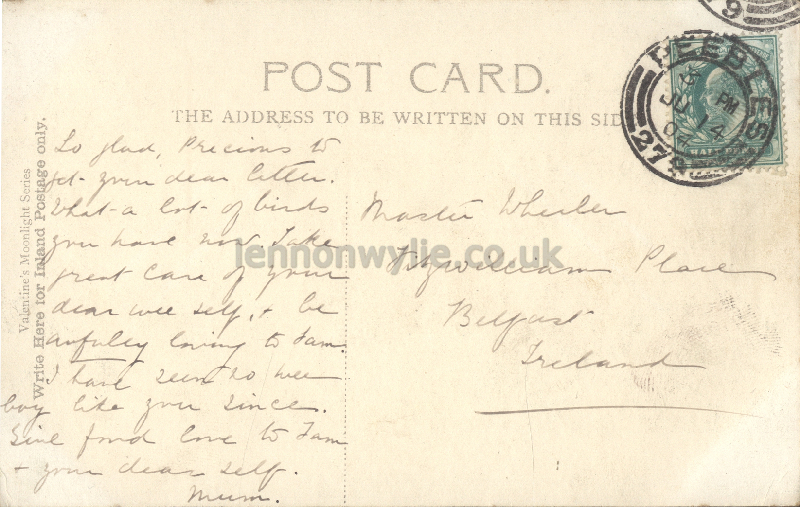 POST CARD.
THE ADDRESS TO BE WRITTEN ON THIS SID
Valentine's Moonlight Series
Write Here for Inland Postage only.
So glad, Precious to
get your dear letter.
What a lot of birds
you have now. Take
great care of your
dear wee self, & be
awfully loving to Fam.
I have seen no wee
boy like you since.
Give fond love to Fam
& your dear self.
Mum.
Master Wheeler
Fitzwilliam Place
Belfast
Ireland
PEEBLES
PM
JU 14
279
HALF PENNY
9
lennonwylie.co.uk